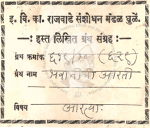 इ. वि. का. राजवाडे संशोधन मंडळ धुळें.
हस्त लिखित ग्रंथ संग्रह
ग्रंथ क्रमांक
ग्रंथ नाम भवानीची आरती
विषय आरत्या.